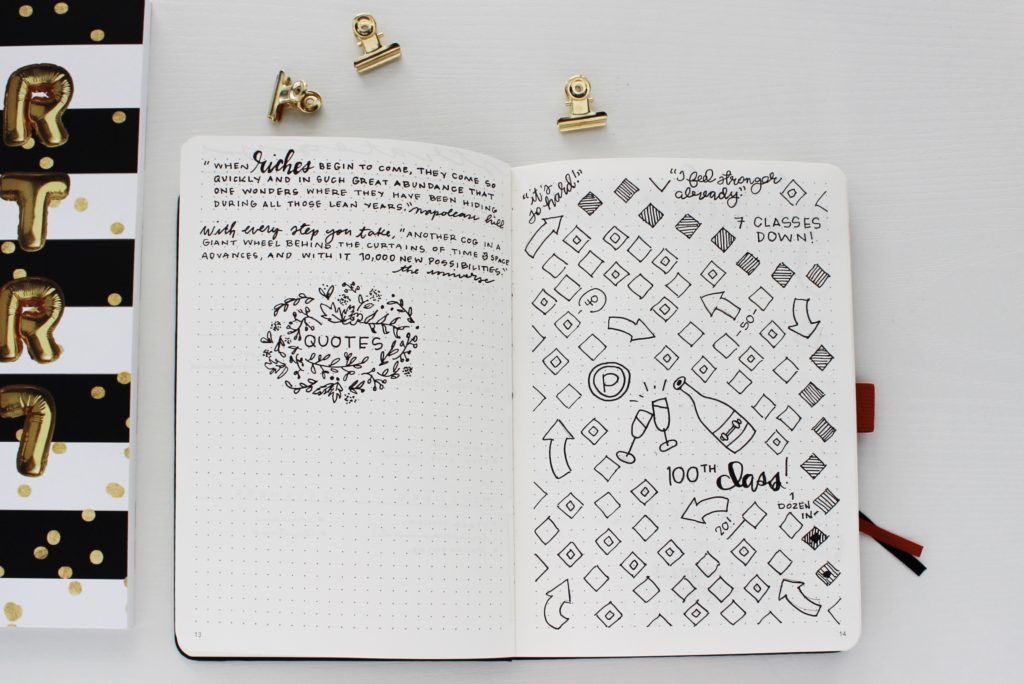 R
T
R
"WHEN riches BEGIN TO COME, THEY COME SO
QUICKLY AND IN SUCH GREAT ABUNDANCE THAT
ONE WONDERS WHERE THEY HAVE BEEN HIDING
DURING ALL THOSE LEAN YEARS." napoleon hill
With every step you take, "ANOTHER COG IN A
GIANT WHEEL BEHIND THE CURTAINS OF TIME & SPACE
ADVANCES, AND WITH IT 10,000 NEW POSSIBILITIES."
the universe
QUOTES
13
"it's
so hard!"
"I feel stronger
already."
7 CLASSES
DOWN!
-50-
P
100TH class!
1
DOZEN
IN-
20!
14